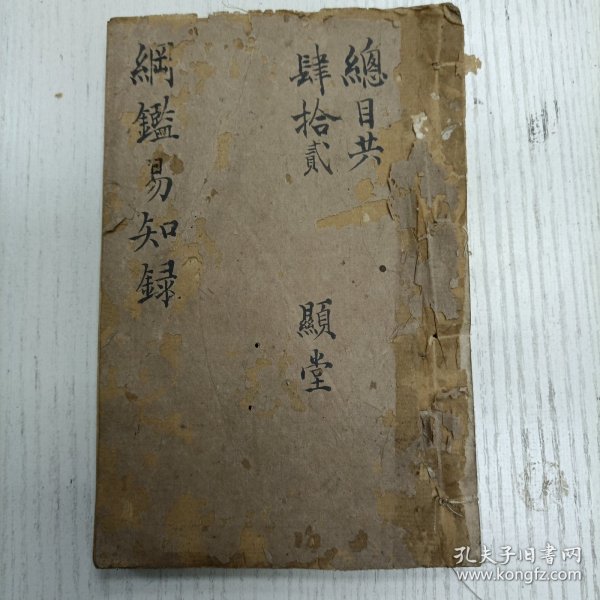 總目共
肆拾貳
顯堂
綱鑑易知録
孔夫子旧书网
www.kongfz.com